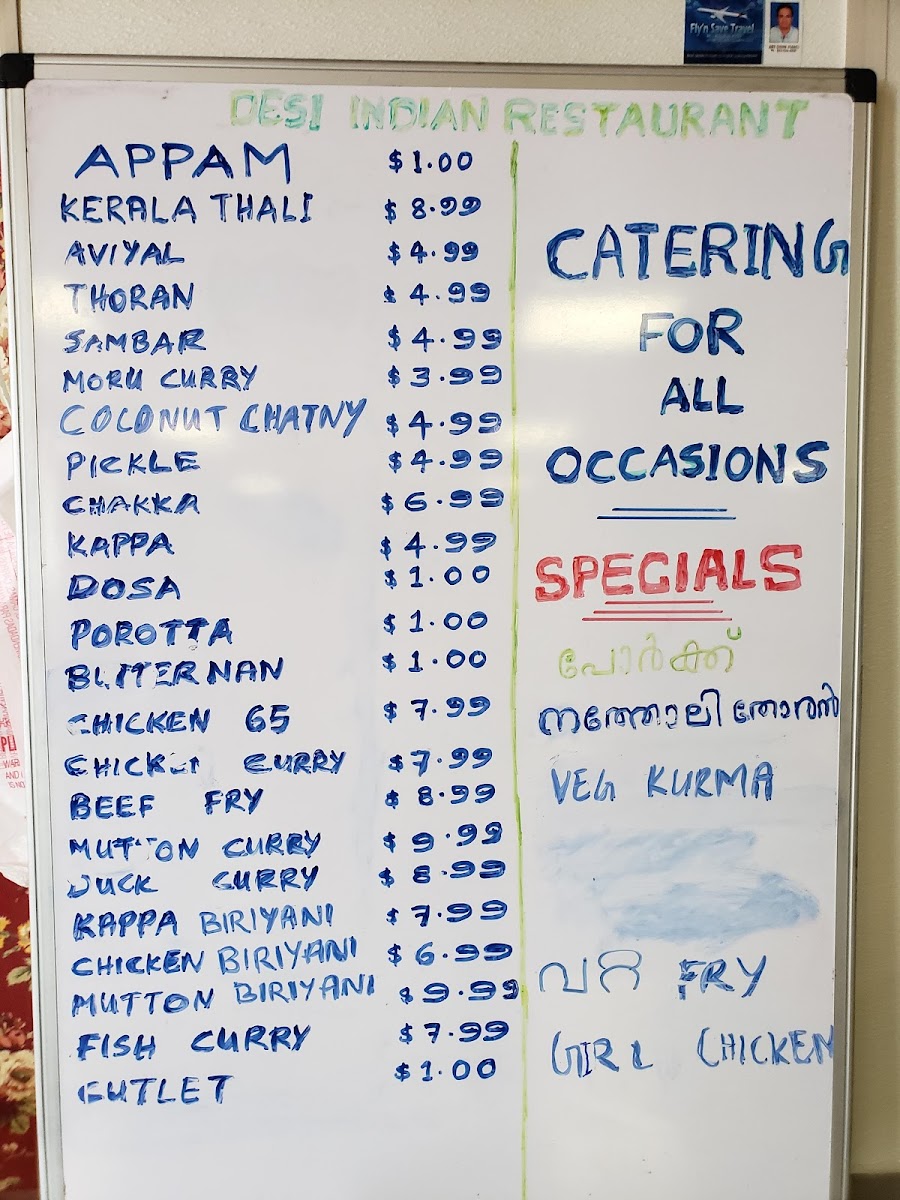 Fly'n Save Travel
DESI INDIAN RESTAURANT
APPAM $1.00
KERALA THALI $8.99
AVIYAL $4.99
THORAN $4.99
SAMBAR $4.99
MORU CURRY $3.99
COLONUT CHATNY $4.99
PICKLE $4.99
CHAKKA $6.99
KAPPA $4.99
DOSA $1.00
POROTTA $1.00
BUTTER NAN $1.00
CHICKEN 65 $7.99
CHICKEN CURRY $7.99
BEEF FRY $8.99
MUTTON CURRY $9.99
DUCK CURRY $8.99
KAPPA BIRIYANI $7.99
CHICKEN BIRIYANI $6.99
MUTTON BIRIYANI $9.99
FISH CURRY $7.99
CUTLET $1.00
CATERING
FOR
ALL
OCCASIONS
SPECIALS
പോർക്ക്
നത്തോലി തോരൻ
VEG KURMA
വറ്റ FRY
GIRL CHICKEN